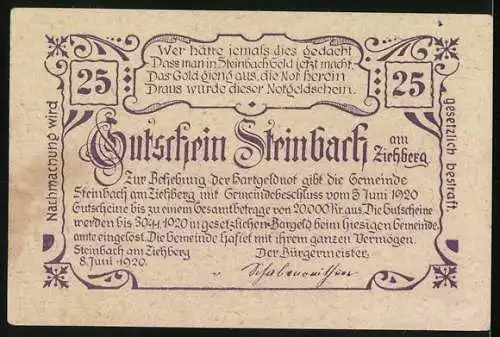 Wer hätte jemals dies gedacht
Dass man in Steinbach Geld jetzt macht.
Das Gold gieng aus, die Not herein
Draus wurde dieser Notgeldschein.
25
25
Nachmachung wird
gesetzlich bestraft.
Gutschein Steinbach am Ziehberg
Zur Behebung der Hartgeldnot gibt die Gemeinde
Steinbach am Ziehberg mit Gemeindebeschluss vom 3 Juni 1920
Gutscheine bis zu einem Gesamtbetrage von 20.000 Kr. aus. Die Gutscheine
werden bis 30/11. 1920 in gesetzlichen Bargeld beim hiesigen Gemeinde,
amte eingelöst. Die Gemeinde haftet mit ihrem ganzen Vermögen.
Steinbach am Ziehberg Der Bürgermeister,
8. Juni 1920.